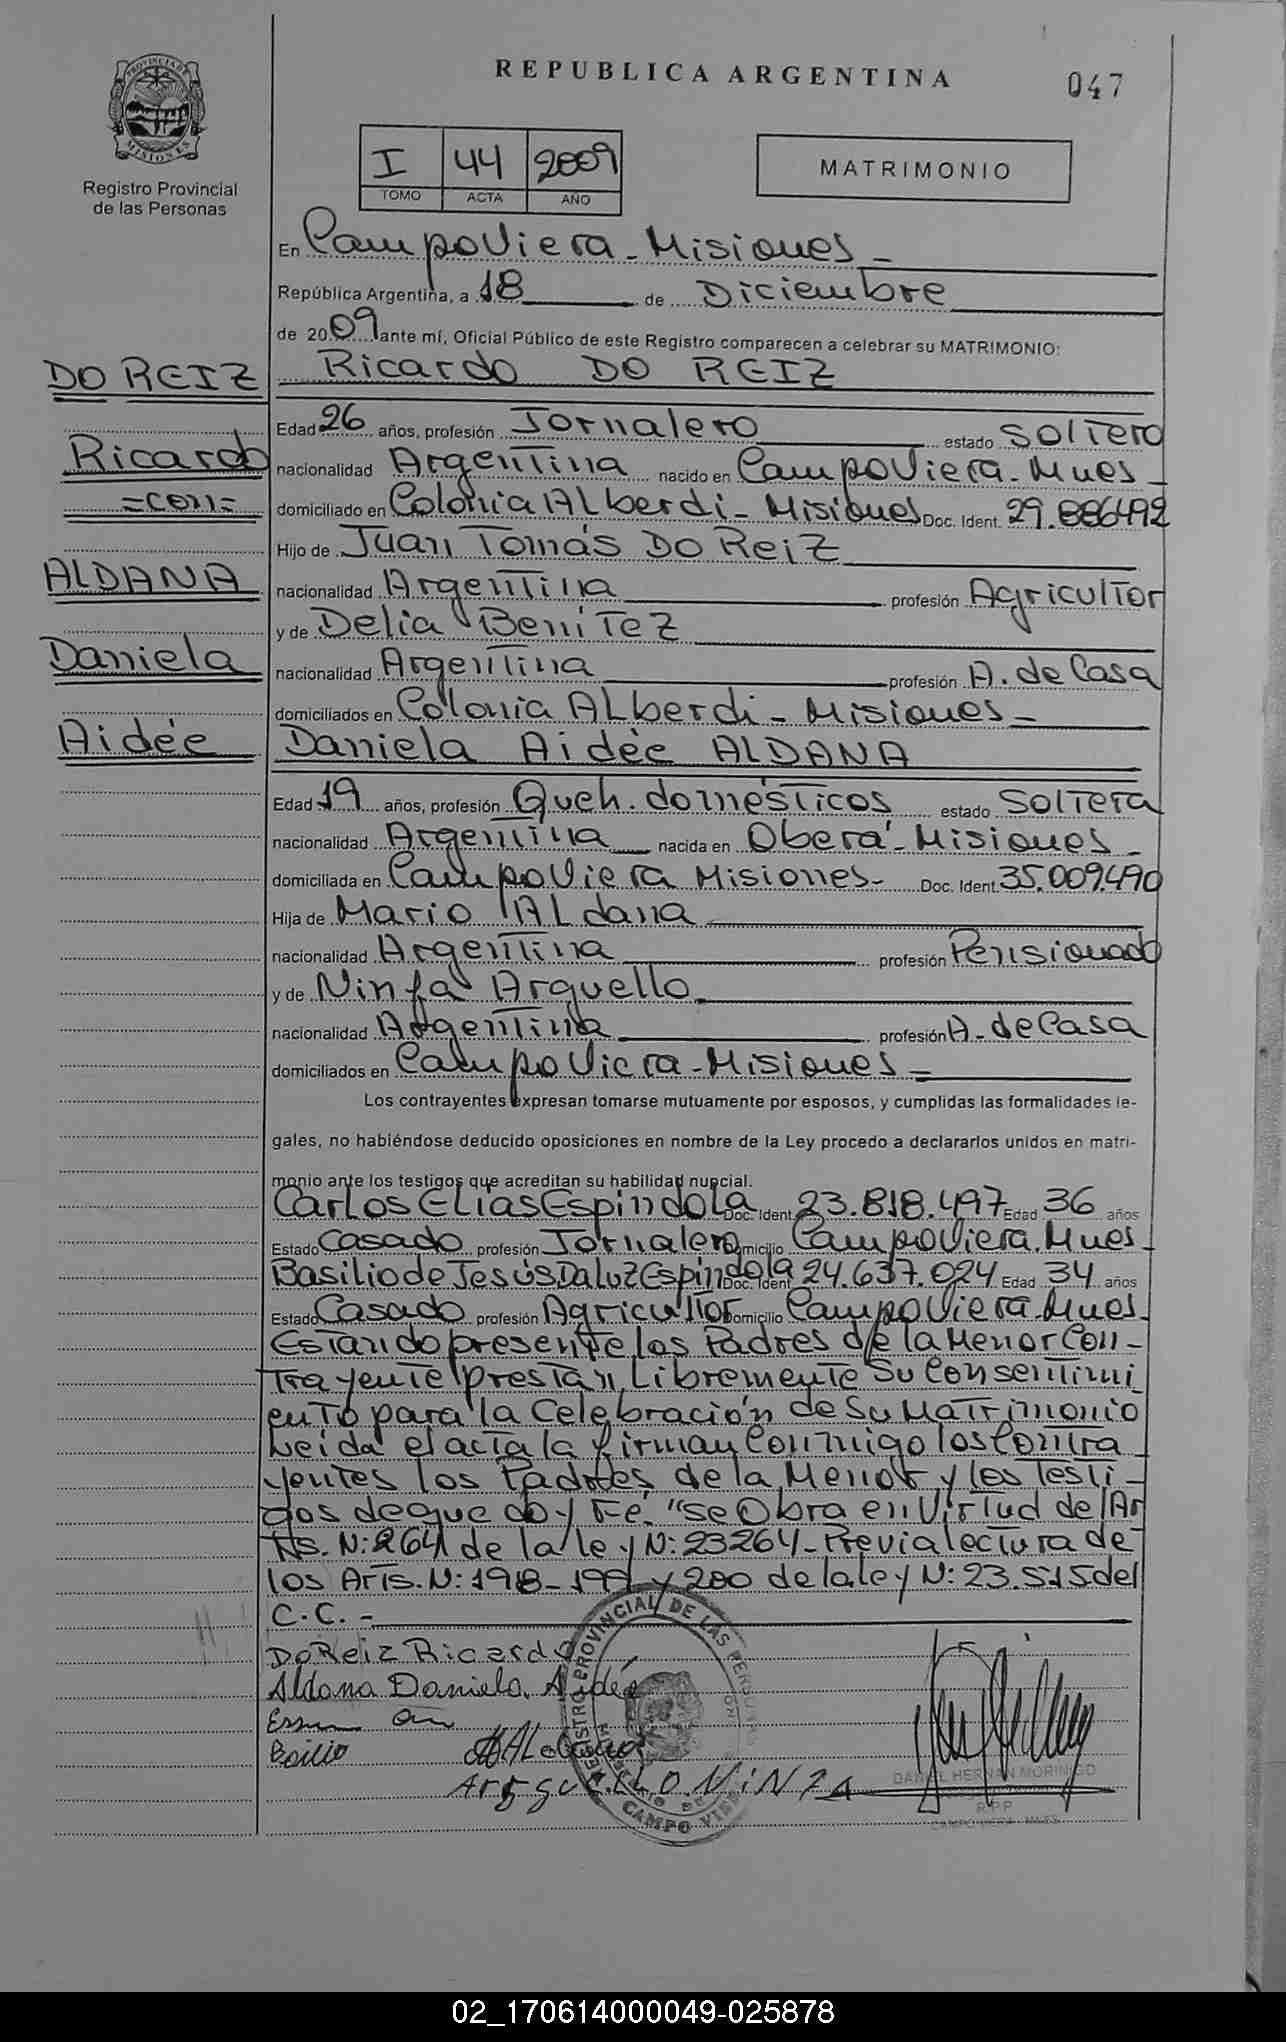 REPUBLICA ARGENTINA
047
PROVINCIA DE MISIONES
Registro Provincial
de las Personas
I 44 2009
TOMO ACTA AÑO
MATRIMONIO
En Campo Viera - Misiones -
República Argentina, a 18 de Diciembre
de 2009 ante mí, Oficial Público de este Registro comparecen a celebrar su MATRIMONIO:
DO REIZ
Ricardo
=con=
ALDANA
Daniela
Aidée
Ricardo DO REIZ
Edad 26 años, profesión Jornalero estado Soltero
nacionalidad Argentina nacido en Campo Viera - Mnes -
domiciliado en Colonia Alberdi - Misiones Doc. Ident. 29.886492
Hijo de Juan Tomás Do Reiz
nacionalidad Argentina profesión Agricultor
y de Delia Benitez
nacionalidad Argentina profesión A. de Casa
domiciliados en Colonia Alberdi - Misiones -
Daniela Aidée ALDANA
Edad 19 años, profesión Queh. domésticos estado Soltera
nacionalidad Argentina nacida en Oberá - Misiones -
domiciliada en Campo Viera Misiones - Doc. Ident. 35.009.490
Hija de Mario Aldana
nacionalidad Argentina profesión Pensionado
y de Ninfa Arguello
nacionalidad Argentina profesión A. de Casa
domiciliados en Campo Viera - Misiones -
Los contrayentes expresan tomarse mutuamente por esposos, y cumplidas las formalidades le-
gales, no habiéndose deducido oposiciones en nombre de la Ley procedo a declararlos unidos en matri-
monio ante los testigos que acreditan su habilidad nupcial.
Carlos Elías Espíndola Doc. Ident. 23.818.497 Edad 36 años
Estado Casado profesión Jornalero Domicilio Campo Viera. Mnes -
Basilio de Jesús Da Luz Espíndola Doc. Ident. 24.637.024 Edad 34 años
Estado Casado profesión Agricultor Domicilio Campo Viera. Mnes.
Estando presente los Padres de la Menor Con-
trayente prestan Libremente su Consentimi
ento para la Celebración de su Matrimonio
Leida el acta la firman Conmigo los Contra
yentes los Padres de la Menor y los Testi-
gos de que doy Fé. "Se Obra en Virtud del Ar
ts. N: 264 de la ley N: 23264 - Previa lectura de
los Arts. N: 198 - 199 y 200 de la ley N: 23.515 del
C.C. -
Do Reiz Ricardo
Aldana Daniela Aidée
Arrguello Ninfa
REGISTRO PROVINCIAL DE LAS PERSONAS
CAMPO VIERA
DANIEL HERNAN MORINIGO
R.P.P
CAMPO VIERA - MNES
02_170614000049-025878